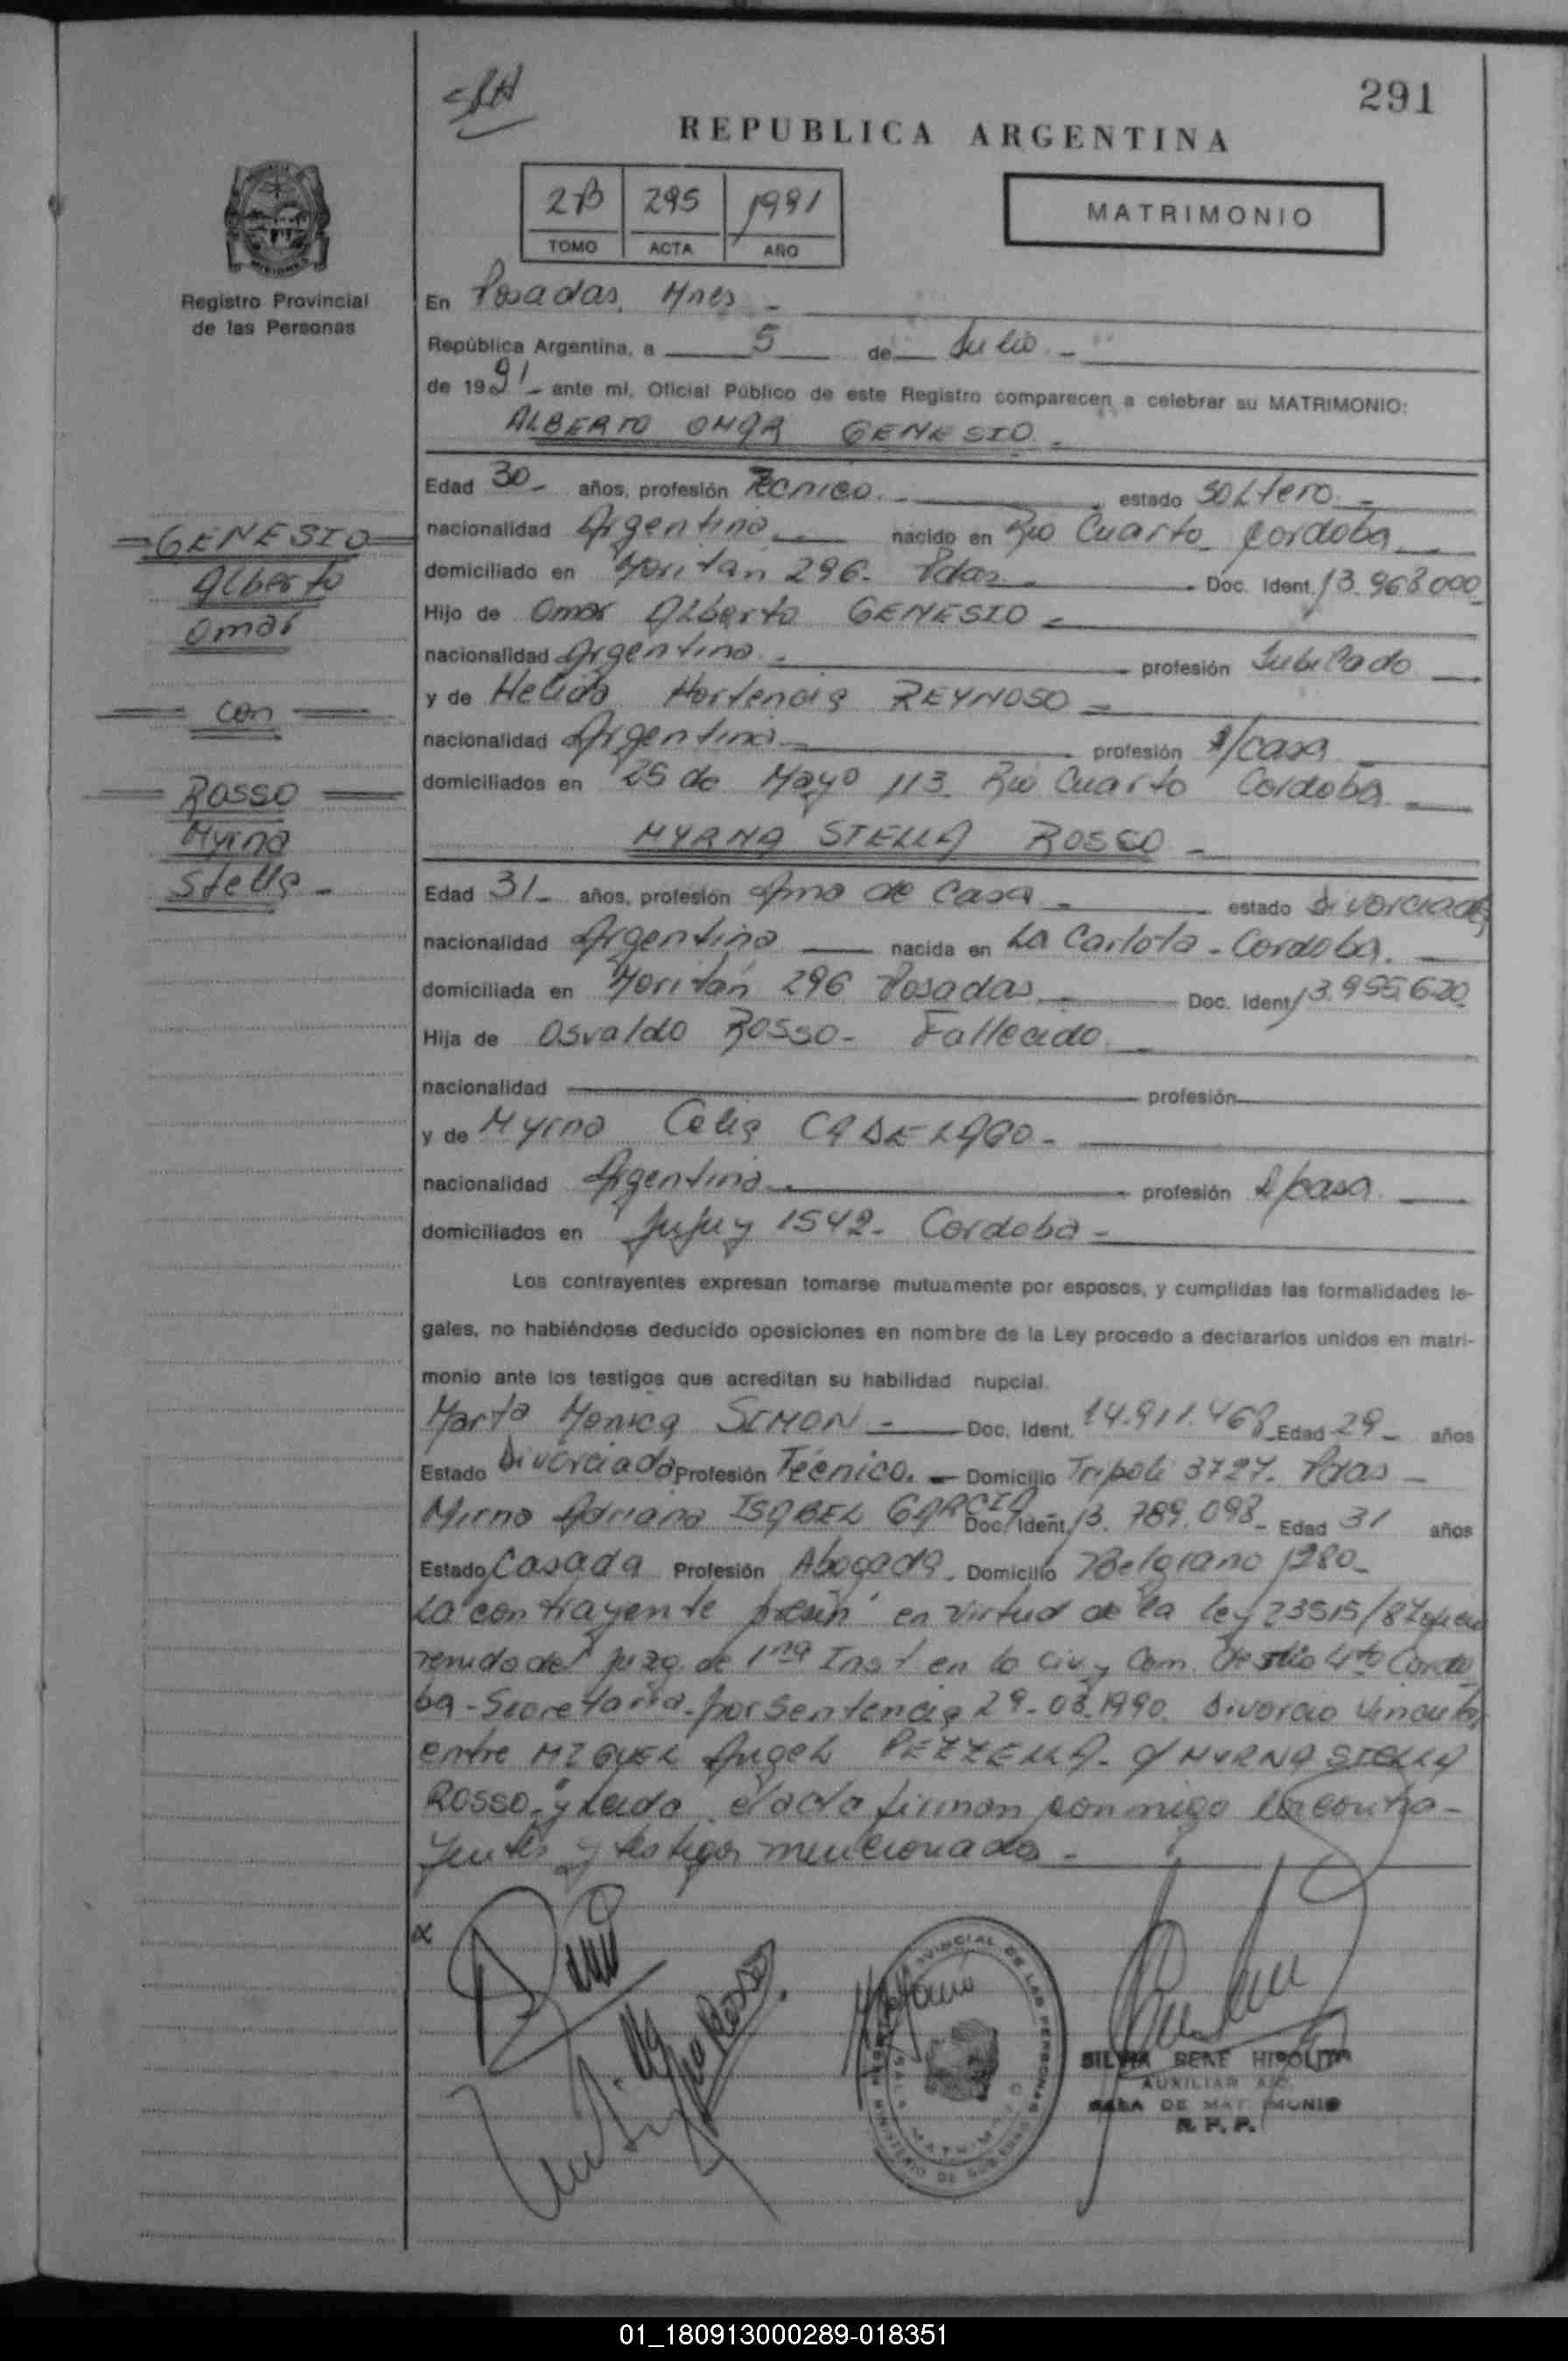 291
REPUBLICA ARGENTINA
2B 295 1991
TOMO ACTA AÑO
MATRIMONIO
MISIONES
Registro Provincial
de las Personas
En Posadas, Mnes -
República Argentina, a 5 de Julio -
de 1991 - ante mi, Oficial Público de este Registro comparecen a celebrar su MATRIMONIO:
ALBERTO OMAR GENESIO -
Edad 30 - años, profesión Tecnico. - estado Soltero -
nacionalidad Argentina nacido en Rio Cuarto Cordoba
domiciliado en Moritán 296 - Pdas - Doc. Ident. 13.968.000
Hijo de Omar Alberto GENESIO -
nacionalidad Argentina - profesión Jubilado
y de Helida Hortencia REYNOSO -
nacionalidad Argentina - profesión A/casa
domiciliados en 25 de Mayo 113 Rio Cuarto Cordoba
=GENESIO=
Alberto
Omar
= con =
= Rosso =
Myrna
Stella -
MYRNA STELLA ROSSO -
Edad 31 - años, profesión Ama de Casa - estado Divorciada
nacionalidad Argentina nacida en La Carlota - Cordoba.
domiciliada en Moritán 296 Posadas - Doc. Ident 13.955.620
Hija de Osvaldo Rosso - Fallecido
nacionalidad profesión
y de Myrna Celia -
nacionalidad Argentina - profesión A/casa
domiciliados en Jujuy 1542 - Cordoba -
Los contrayentes expresan tomarse mutuamente por esposos, y cumplidas las formalidades le-
gales, no habiéndose deducido oposiciones en nombre de la Ley procedo a declararlos unidos en matri-
monio ante los testigos que acreditan su habilidad nupcial.
Marta Monica SIMON - Doc. Ident. 14.911.468 Edad 29 - años
Estado Divorciada Profesión Técnico. - Domicilio Tripoli 3727. Pdas -
Mirna Adriana ISABEL GARCIA Doc. Ident. 13.789.098 - Edad 31 años
Estado Casada Profesión Abogada. Domicilio Belgrano 1280 -
La contrayente en virtud de la ley 23515/87
del Juzg. de 1ra Inst en lo Civ y Com. 4to Cordo
ba - Secretaria - por Sentencia 29-03-1990. Divorcio Vincular
entre MIGUEL Angel PEZZELLA - y MYRNA STELLA
ROSSO - y leida el acta firman conmigo los contra-
yentes y testigos mencionados -
SILVIA RENE HIPOLITA
AUXILIAR
SALA DE MATRIMONIO
R. P. P.
01_180913000289-018351